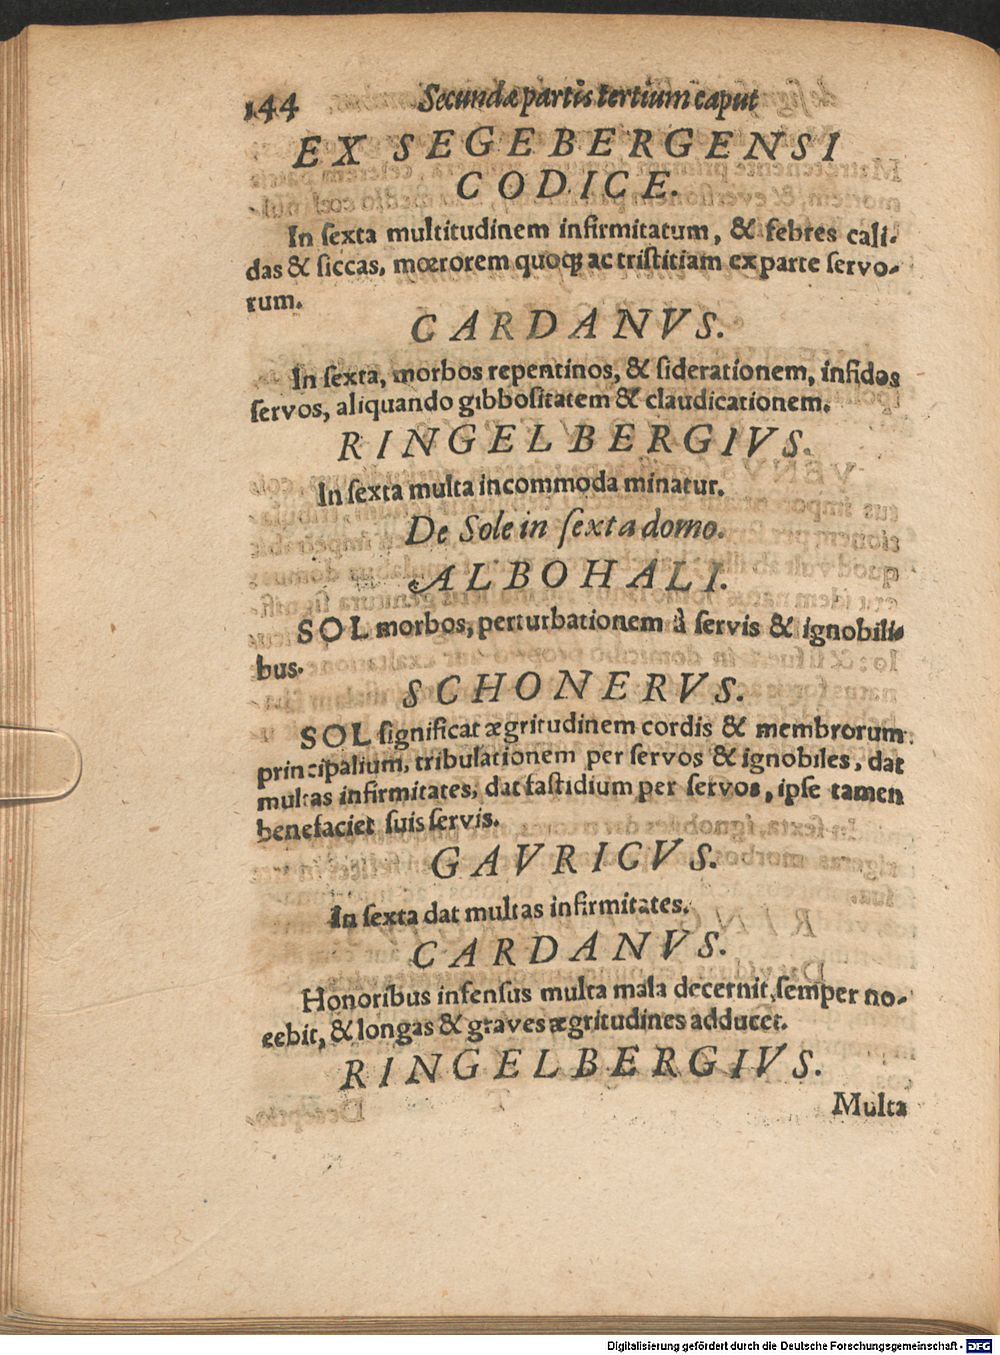 144 Secundæ partis tertium caput
EX SEGEBERGENSI
CODICE.
In sexta multitudinem infirmitatum, & febres cali-
das & siccas, mœrorem quoq; ac tristitiam ex parte servo-
rum.
CARDANVS.
In sexta, morbos repentinos, & siderationem, infidos
servos, aliquando gibbositatem & claudicationem.
RINGELBERGIVS.
In sexta multa incommoda minatur.
De Sole in sexta domo.
ALBOHALI.
SOL morbos, perturbationem à servis & ignobili-
bus.
SCHONERVS.
SOL significat ægritudinem cordis & membrorum
principalium, tribulationem per servos & ignobiles, dat
multas infirmitates, dat fastidium per servos, ipse tamen
benefaciet suis servis.
GAVRICVS.
In sexta dat multas infirmitates.
CARDANVS.
Honoribus infensus multa mala decernit, semper no-
cebit, & longas & graves ægritudines adducet.
RINGELBERGIVS.
Multa
Digitalisierung gefördert durch die Deutsche Forschungsgemeinschaft - DFG